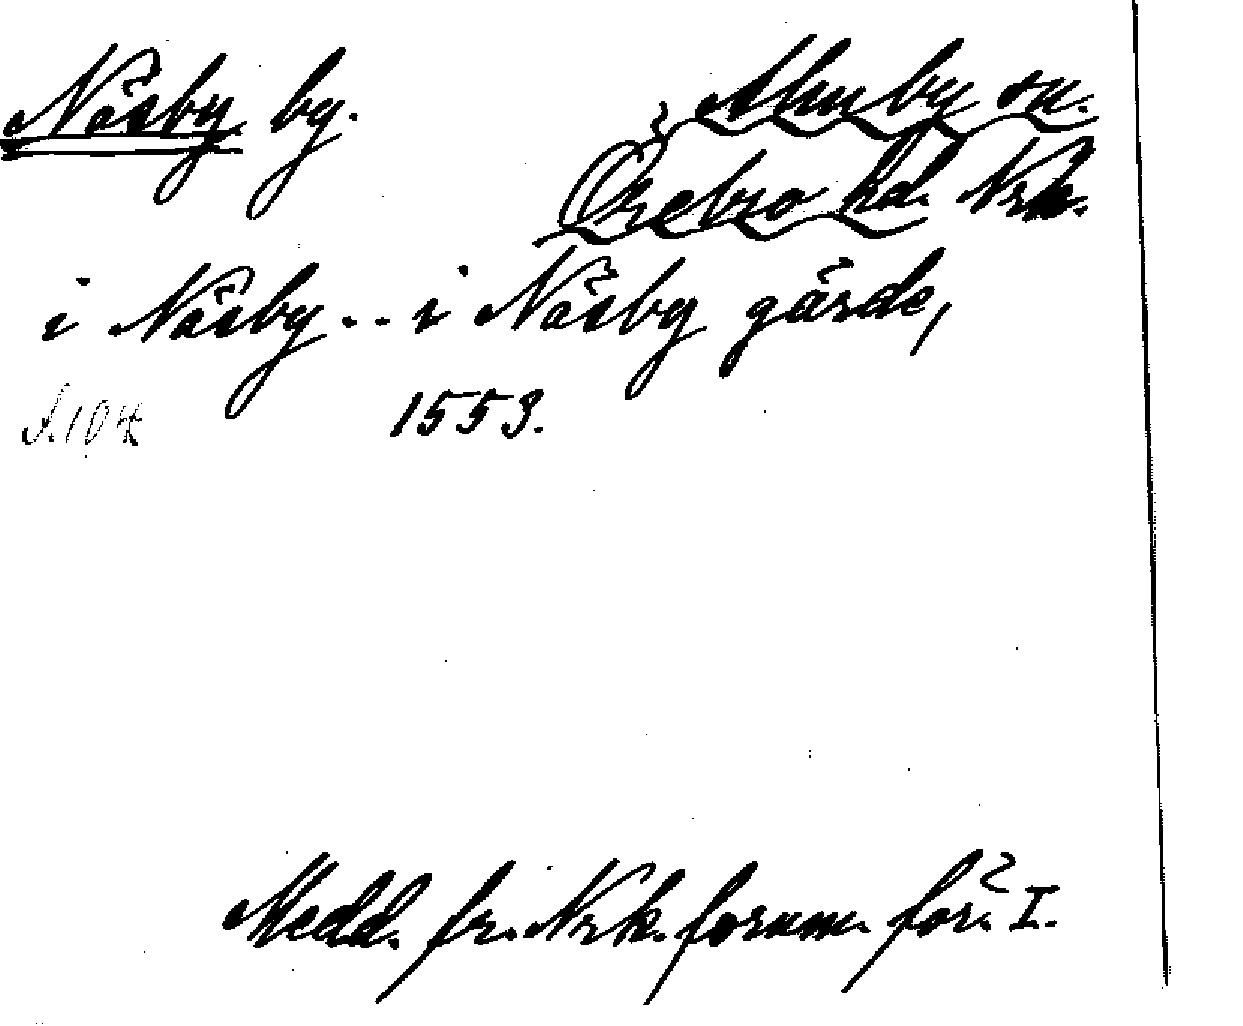 Näsby by. Almby sn.
Örebro hd. Nrk.
i Näsby.. i Näsby gärde,
S.104 1553.
Medd. fr. Nrk. fornm. för. I.